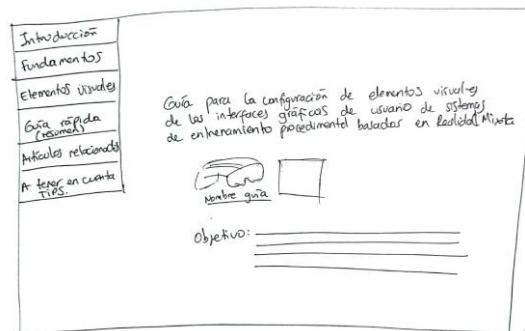 Introducción
Fundamentos
Elementos visuales
Guía rápida
(resumen)
Artículos relacionados
A tener en cuenta
TIPS.
Guía para la configuración de elementos visuales
de las interfaces gráficas de usuario de sistemas
de entrenamiento procedimental basados en Realidad Mixta
Nombre guía
Objetivo: